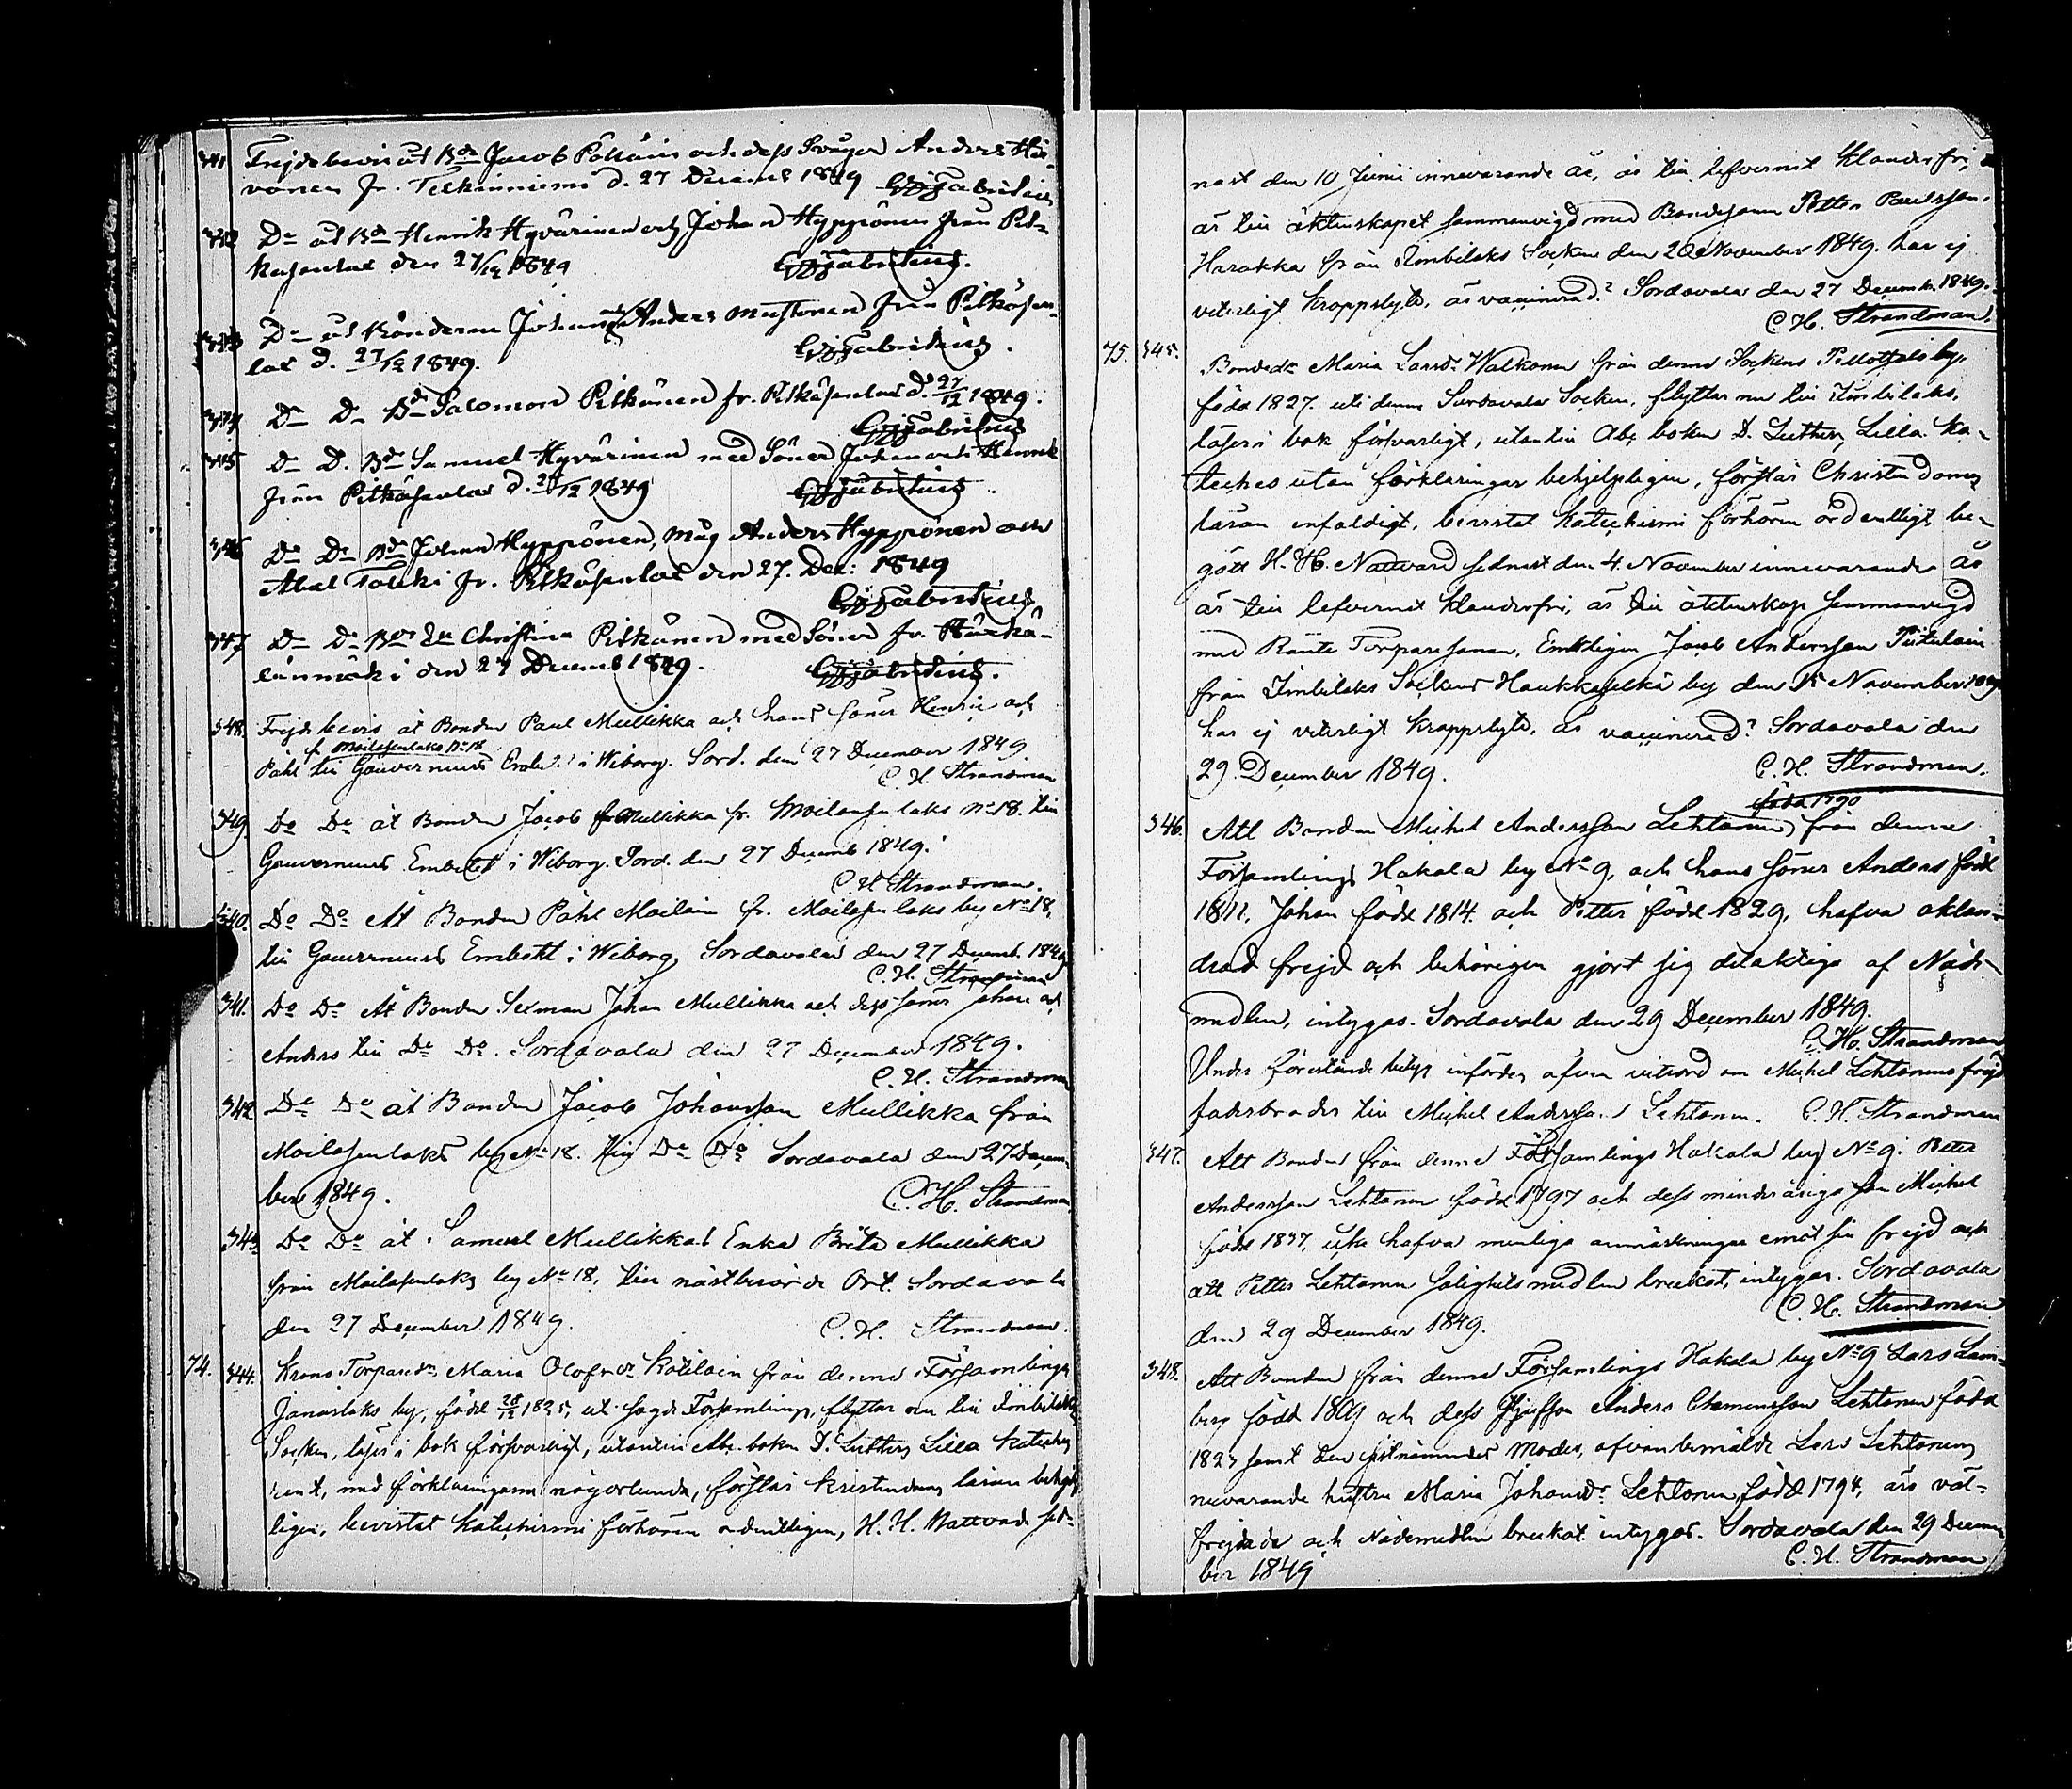 341 Frejdebevis åt Bdn Jacob Pölläin och dess Svåger Anders Hir-
vonen fr. Telkinniemi d. 27 Decemb 1849 Fabritius
342 Do åt Bdn Henrik Hyvärinen och Johan Hyppönen från Pit-
käjenlax den 27/12 1849 Fabritius.
343 Do åt Bönderne Johan och Anders Mustonen från Pitkäjen-
lax d. 27/12 1849. Fabritius.
344 Do Do Bdn Salomon Pitkänen fr. Pitkäjenlax d. 27/12 1849.
Fabritius
345 Do D. Bdn Samuel Hyvärinen med Söner Johan och Henrik
från Pitkäjenlax d. 27/12 1849 Fabritius
346 Do Do Bdn Johan Hyppönen, Måg Anders Hyppönen och
Abel Tolkki fr. Pitkäjenlax den 27. Dec: 1849
Fabritius
347 Do Do Christina Pitkänen med Söner fr.
den 27 Decemb 1849. Fabritius.
348. Frejdebevis åt Bonden Paul Mullikka och hans söner Henric och
fr Mailasenlaks No 18
Påhl till Gouverneurs i Wiborg. Sord. den 27 December 1849
C. H. Strandman
349. Do Do åt Bonden Jacob Mullikka fr. Mailasenlaks No 18. till
Gouverneurs Embetet i Wiborg. Sord. den 27 Decemb 1849.
C. H Strandman.
340. Do Do Åt Bonden Påhl Mailain fr. Mailasenlaks by No 18,
till Gouverneurs Embetet i Wiborg, Sordavala den 27 Decemb. 1849
C. H. Strandman
341. Do Do Åt Bonden Johan Mullikka och dess söner Johan och
Anders till Do Do. Sordavala den 27 December 1849.
C. H. Strandman
342 Do Do åt Bonden Jacob Johansson Mullikka från
Mailasenlaks by No 18. till Do Do Sordavala den 27 Decem-
ber 1849. C. H. Strandman
343 Do Do åt Samuel Mullikkas Enka Brita Mullikka
från Mailasenlaks by No 18, till nästberörde Ort. Sordavala
den 27 December 1849. C. H. Strandman.
74. 344. Krono Torparedr Maria Olofsdr Kotilain från denne Församlings
Janaslaks by, född 28/12 1825, uti sagde Församling, flyttar nu till Imbilaks
Socken, läser i bok försvarligt, utantill Abc boken D. Luthers Lilla Kateches
rent, med förklaringarna någorlunda, förstår kristendoms läran behjelp-
ligen, bevistat Katechismi förhören ordentligen, H. H. Nattvard sed-
nast den 10 Junii innevarande år, är till lefvernet Klanderfri,
är till äktenskapet sammanvigd med Bondesonen Petter Paulsson
Harakka från Imbilaks Socken den 20 November 1849. har ej
veterligt kroppslyte, är vaccinerad? Sordavala den 27 Decembr 1849.
C H. Strandman.
75. 345. Bondedr Maria Larsdr Walkonen från denne Sockens by.
född 1827. uti denne Sordavala Socken, flyttar nu till Imbilaks,
läser i bok försvarligt, utantill Abc boken D. Luthers Lilla Ka-
teches utan förklaringar behjelpligen, förstår Christendoms
läran enfaldigt, bevistat Katechismi förhören ordentligt, be-
gått H. H. Nattvard sednast den 4. November innevarande år
är till lefvernet klanderfri, är till äktenskap sammanvigd
med Ränte Torparesonen, Enklingen Jacob Andersson
från Imbilaks Sockens Haukkaselkä by den 15 November 1849
har ej veterligt kroppslyte, är vaccinerad? Sordavala den
29 December 1849. C. H. Strandman.
född 1790
346. Att Bonden Michel Andersson Lehtonen från denne
Församlings Hakala by No 9, och hans söner Anders född
1811, Johan född 1814. och Petter född 1829, hafva oklan-
drad frejd och behörigen gjort sig delaktige af Nåde-
medlen, intygas. Sordavala den 29 December 1849.
C. H. Strandman
Under förestående betyg infördes äfven vitsord om Michel Lehtonens frejd
fadersbroder till Michel Andersson Lehtonen. C. H. Strandman
347. Att Bonden från denne Församlings Hakala by No 9. Petter
Andersson Lehtonen född 1797 och dess minderåriga son Michel
född 1837, icke hafva menliga anmärkningar emot sin frejd och
att Petter Lehtonen Salighetsmedlen brukat, intygas. Sordavala
den 29 December 1849. C. H. Strandman
348. Att Bonden från denne Församlings Hakala by No 9 Lars Lam-
berg född 1809 och dess Anders Clemensson Lehtonen född
1823 samt den sistnämndes Moder, ofvanbemälde Lars Lehtonens
nuvarande hustru Maria Johansdr Lehtonen född 1794, äro väl-
frejdade och Nådemedlen brukat intygas. Sordavala den 29 Decem-
ber 1849 C. H. Strandman